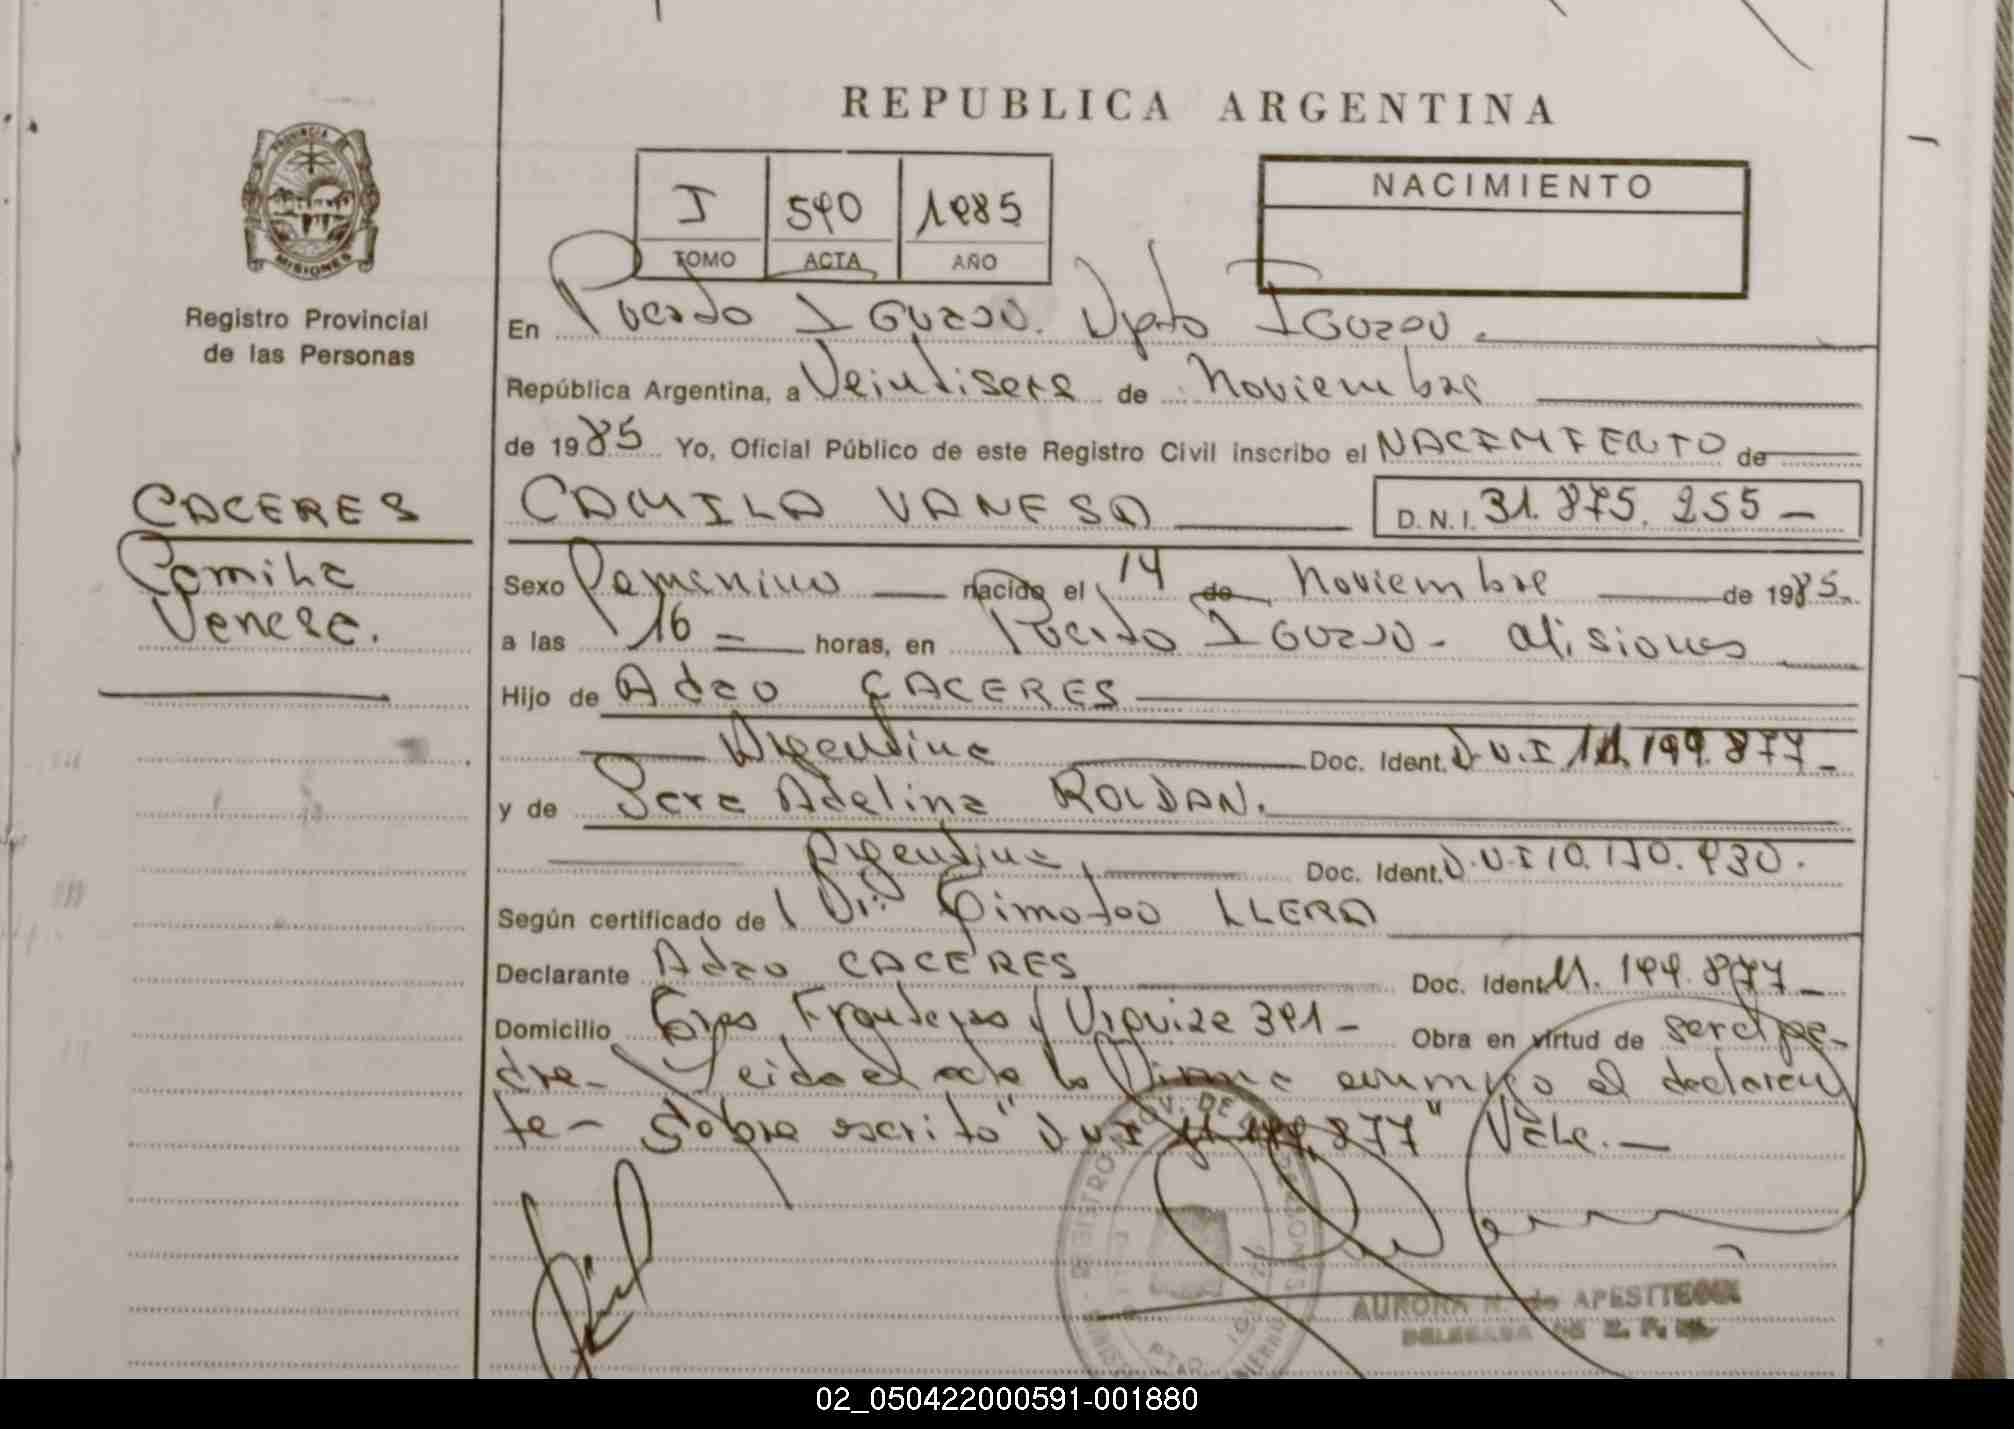 REPUBLICA ARGENTINA
PROVINCIA DE
MISIONES
Registro Provincial
de las Personas
I 590 1985
TOMO ACTA AÑO
NACIMIENTO
En Puerto Iguazú. Dpto Iguazú.
República Argentina, a Veintiseis de Noviembre
de 1985 Yo, Oficial Público de este Registro Civil inscribo el NACIMIENTO de
CACERES
Camila
Vanesa.
CAMILA VANESA D.N.I. 31.875.255-
Sexo Femenino nacido el 14 de Noviembre de 1985
a las 16 = horas, en Puerto Iguazú - Misiones
Hijo de Adao CACERES
Argentina Doc. Ident. D.N.I 11.199.877-
y de Sara Adelina ROLDAN.
Argentina, Doc. Ident. D.N.I 10.170.930.
Según certificado de Dr. Timoteo LLERA
Declarante Adao CACERES Doc. Ident. 11.199.877-
Domicilio Tres Fronteras y Urquiza 391- Obra en virtud de ser el pa-
dre- Leida el acta la firma conmigo el declaran
te- Sobre escrito "D.N.I 11.199.877" Vale.-
AURORA N. de
DELEGADA
02_050422000591-001880